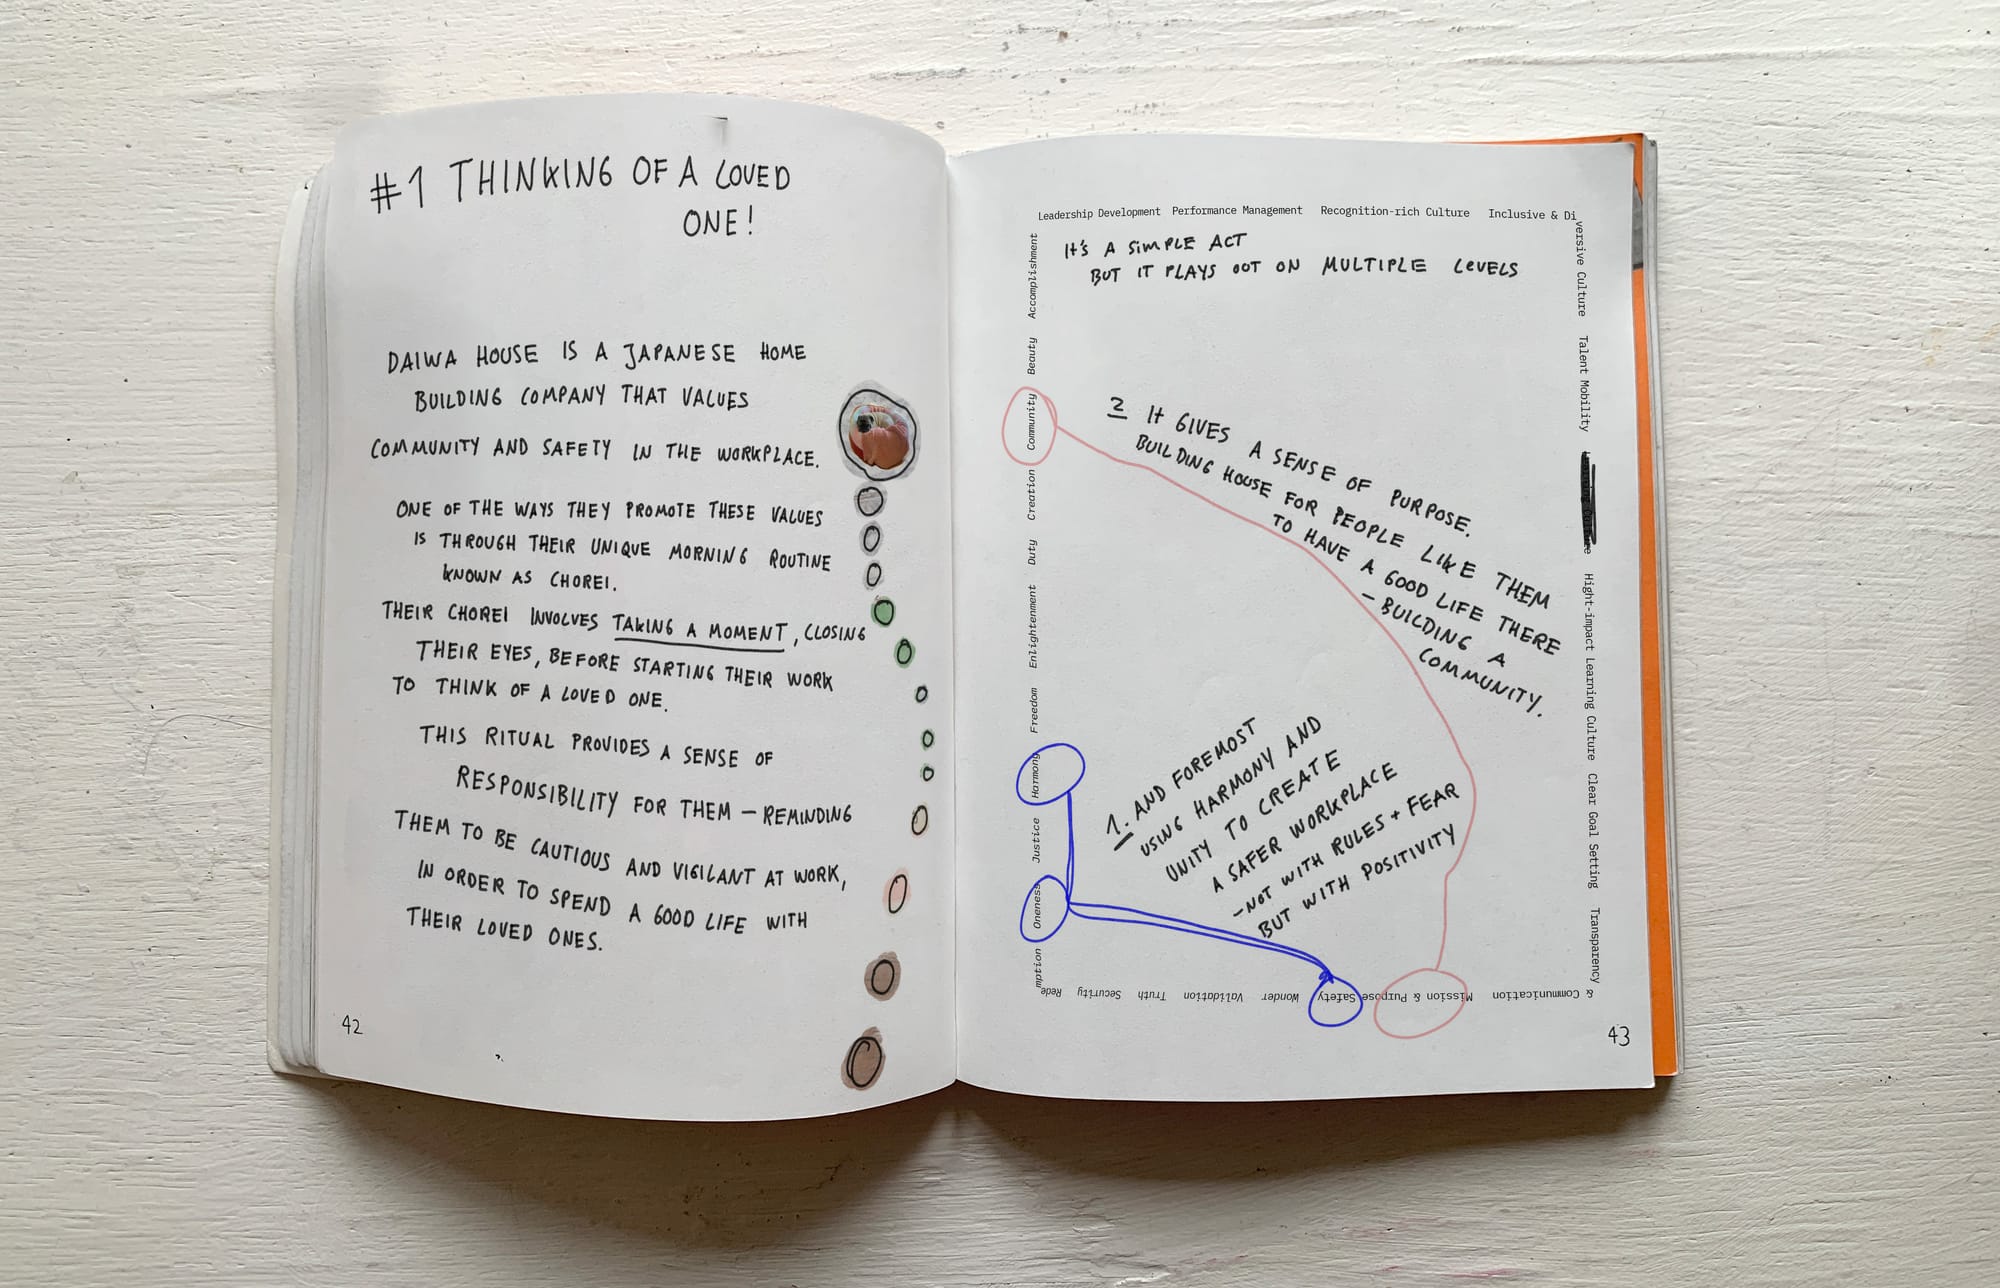 #1 THINKING OF A LOVED
ONE!
DAIWA HOUSE IS A JAPANESE HOME
BUILDING COMPANY THAT VALUES
COMMUNITY AND SAFETY IN THE WORKPLACE.
ONE OF THE WAYS THEY PROMOTE THESE VALUES
IS THROUGH THEIR UNIQUE MORNING ROUTINE
KNOWN AS CHOREI.
THEIR CHOREI INVOLVES TAKING A MOMENT, CLOSING
THEIR EYES, BEFORE STARTING THEIR WORK
TO THINK OF A LOVED ONE.
THIS RITUAL PROVIDES A SENSE OF
RESPONSIBILITY FOR THEM – REMINDING
THEM TO BE CAUTIOUS AND VIGILANT AT WORK,
IN ORDER TO SPEND A GOOD LIFE WITH
THEIR LOVED ONES.
42
Leadership Development Performance Management Recognition-rich Culture Inclusive & Di
versive Culture Talent Mobility Hight-impact Learning Culture Clear Goal Setting Transparency
& Communication Mission & Purpose Safety Wonder Validation Truth Security Rede
mption Oneness Justice Harmony Freedom Enlightenment Duty Creation Community Beauty Accomplishment
It's A SiMPLE ACT
BUT IT PLAYS OUT ON MULTIPLE LEVELS
2 It GIVES A SENSE OF PURPOSE.
BUILDING HOUSE FOR PEOPLE LIKE THEM
TO HAVE A GOOD LIFE THERE
– BUILDING A
COMMUNITY.
1. AND FOREMOST
USING HARMONY AND
UNITY TO CREATE
A SAFER WORKPLACE
– NOT WITH RULES + FEAR
BUT WITH POSITIVITY
43